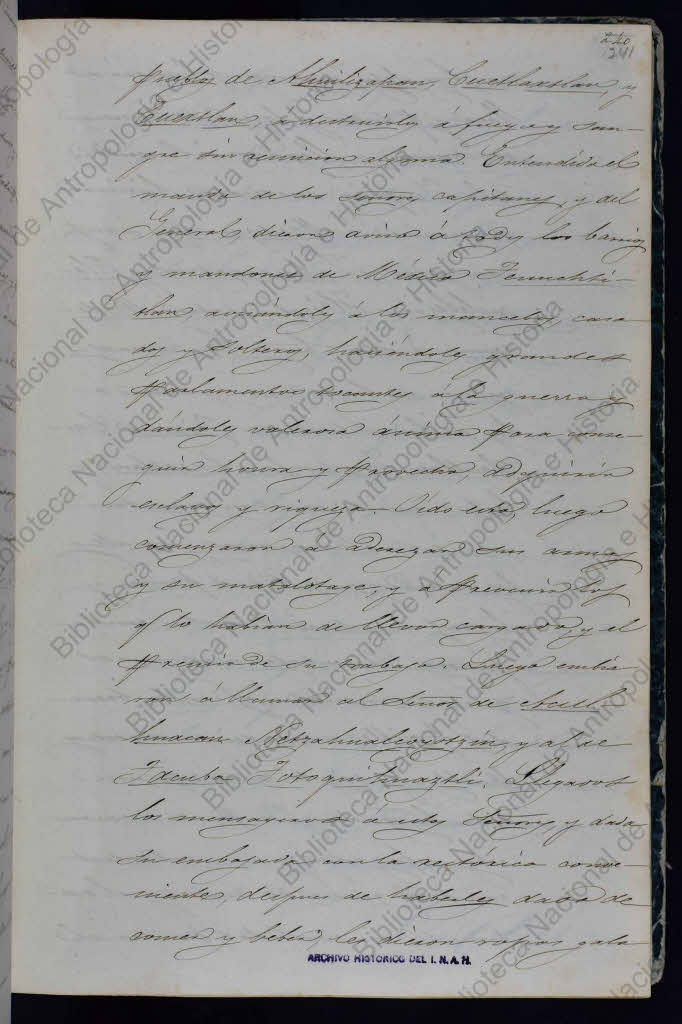 240
241
pueblos de Ahuilizapan, Cuetlaxtlan, y
Cuextlan á destruirlos á fuego y san-
gre sin remision alguna. Entendido el
mando de los Señores capitanes, y del
General, dieron aviso á todos los barrios
y mandones de Mexico Tenuchti-
tlan, avisándoles á los mancebos, casa
dos y solteros, haciéndoles grandes
parlamentos tocantes á la guerra y
dándoles valeroso ánimo para conse-
guir honra y provecho, adquirir
esclavos y riqueza. Oido esto, luego
comenzaron á aderezar sus armas
y su matalotage, y á prevenir los
q.e lo habian de llevar cargado, y el
premio de su trabajo. Luego embia-
ron á llamar al Señor de Acul
huacan Netzahualcoyotzin, y al de
Tacuba Totoquihuaztli. Llegados
los mensageros á estos Señores, y dada
su embajada con la retórica conve-
niente, despues de haberles dado de
comer y beber, les dieron ropas gala
ARCHIVO HISTORICO DEL I. N. A. H.
Biblioteca Nacional de Antropología e Historia